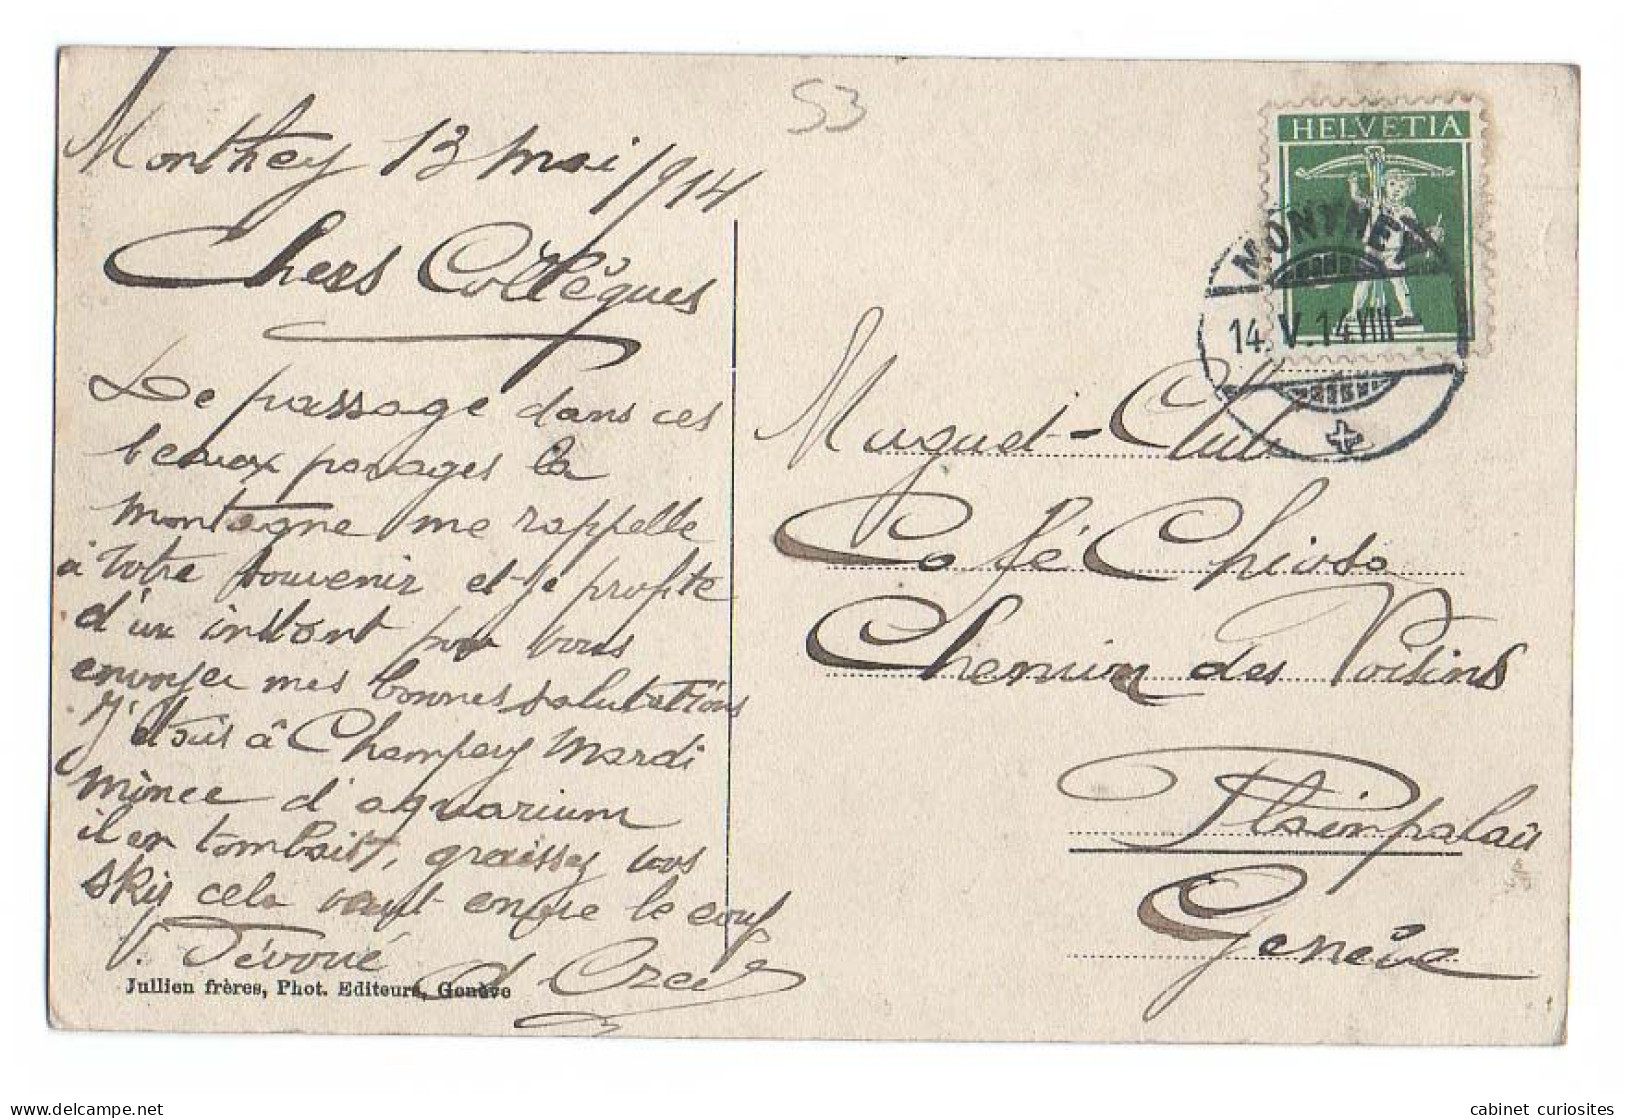 53
Monthey 13 mai 1914
Chers Collègues
De passage dans ces
beaux parages la
montagne me rappelle
à votre souvenir et je profite
d'un instant pour vous
envoyer mes bonnes salutations
J'étais à Champery mardi
mince d'aquarium
il en tombait, graissez vos
skis cela vaut encore le coup
V. Dévoué
Jullien frères, Phot. Editeurs, Genève
HELVETIA
MONTHEY
14.V.14.VIII
Muguet-Club
Café Chioso
Chemin des Voisins
Plainpalais
Genève
cabinet curiosites